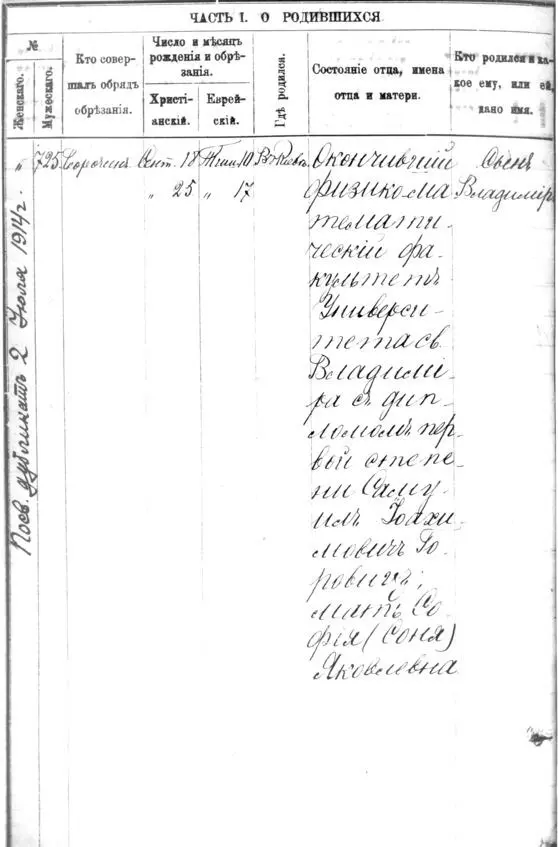 ЧАСТЬ I. О РОДИВШИХСЯ.
№
Женскаго.
Мужескаго.
Кто совер-
шалъ обрядъ
обрѣзанія.
Число и мѣсяцъ
рожденія и обрѣ-
занія.
Христі-
анскій.
Еврей-
скій.
Гдѣ родился.
Состояніе отца, имена
отца и матери.
Кто родился и ка-
кое ему, или ей,
дано имя.
" 725 Сорочкинъ Сент. 18 Тишри 10 В Кіевѣ Окончившій Сынъ
" 25 " 17 физико-ма Владиміръ
темати-
ческій фа-
культетъ
Универси-
тета св.
Владимі-
ра съ дип-
ломомъ пер-
вой степе-
ни Саму-
илъ Іоахи-
мовичъ Го-
ровицъ;
мать Со-
фія (Соня)
Яковлевна
дубликатъ 2 Іюля 1914 г.